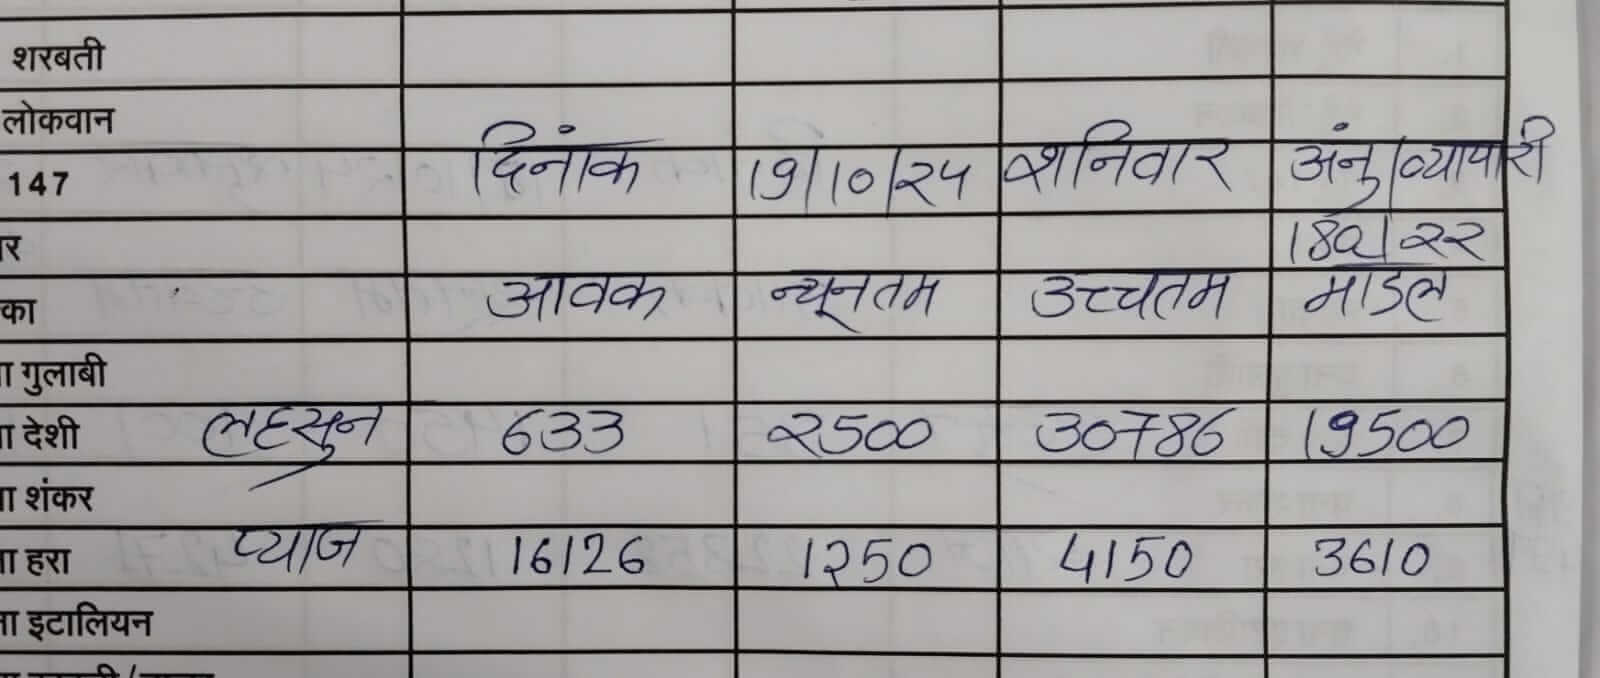 शरबती
लोकवान
147 दिनांक 19/10/24 शनिवार अंनु/व्यापारी
र 180/22
का आवक न्यूनतम उच्चतम माडल
गुलाबी
देशी लहसुन 633 2500 30786 19500
शंकर
हरा प्याज 16126 1250 4150 3610
इटालियन